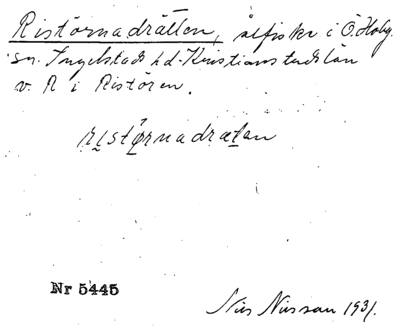 Ristörnadrätten, ålfiske i Ö. Hoby
sn. Ingelstads hd. Kristianstads län
v. R i Ristören.
ristörnadrætan
Nr 5445
Nils Nilsson 1931.